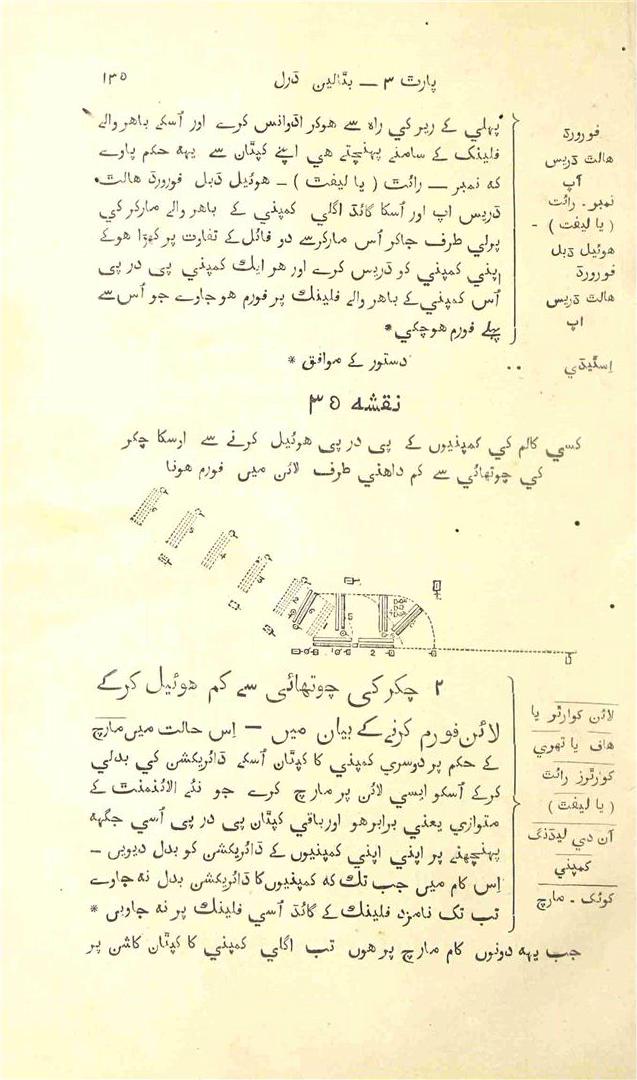 پارٹ ۳ — بٹالین ڈرل
۱۳۵
پہلی کے ریر کی راہ سے ہوکر اڈوانس کرے اور اُسکے باہر والے
فلینک کے سامنے پہنچتے ہی اپنے کپتان سے یہہ حکم پاوے
کہ نمبر — رائٹ ( یا لیفٹ ) - ہوئیل ڈبل فورورڈ ہالٹ
ڈریس اپ اور اُسکا گائڈ اگلی کمپنی کے باہر والے مارکر کی
پرلی طرف جاکر اُس مارکر سے دو فائل کے تفاوت پر کھڑا ہوکے
اپنی کمپنی کو ڈریس کرے اور ہو ایک کمپنی پی در پی
اُس کمپنی کے باہر والے فلینک پر فورم ہوجاوے جو اُس سے
پہلے فورم ہوچکی *
فورورڈ
ہالٹ ڈریس
اَپ
نمبر - رائٹ
( یا لیفٹ ) -
ہوئیل ڈبل
فورورڈ
ہالٹ ڈریس
اپ
دستور کے موافق *
اِسٹیڈی ..
نقشہ ۳۵
کسی کالم کی کمپنیوں کے پی در پی ہوئیل کرنے سے اوسکا چکر
کی چوتھائی سے کم داہنی طرف لائن میں فورم ہونا
۲ چکر کی چوتھائی سے کم ہوئیل کرکے
لائن فورم کرنے کے بیان میں — اِس حالت میں مارچ
کے حکم پر دوسری کمپنی کا کپتان اُسکے ڈائریکشن کی بدلی
کرکے اُسکو ایسی لائن پر مارچ کرے جو نئے الائنمنٹ کے
متوازی یعنی برابر ہو اور باقی کپتان پی در پی اُسی جگہہ
پہنچھنے پر اپنی اپنی کمپنیوں کے ڈائریکشن کو بدل دیویں -
اِس کام میں جب تک کہ کمپنیوں کا ڈائریکشن بدل نہ جاوے
تب تک نامزد فلینک کے گائڈ اُسی فلینک پر نہ جاویں *
لائن کوارٹر یا
ہاف یا تھری
کوارٹرز رائٹ
( یا لیفٹ )
آن دی لیڈنگ
کمپنی
کوئک - مارچ
جب یہہ دونوں کام مارچ پر ہوں تب اگلی کمپنی کا کپتان کاشن پر